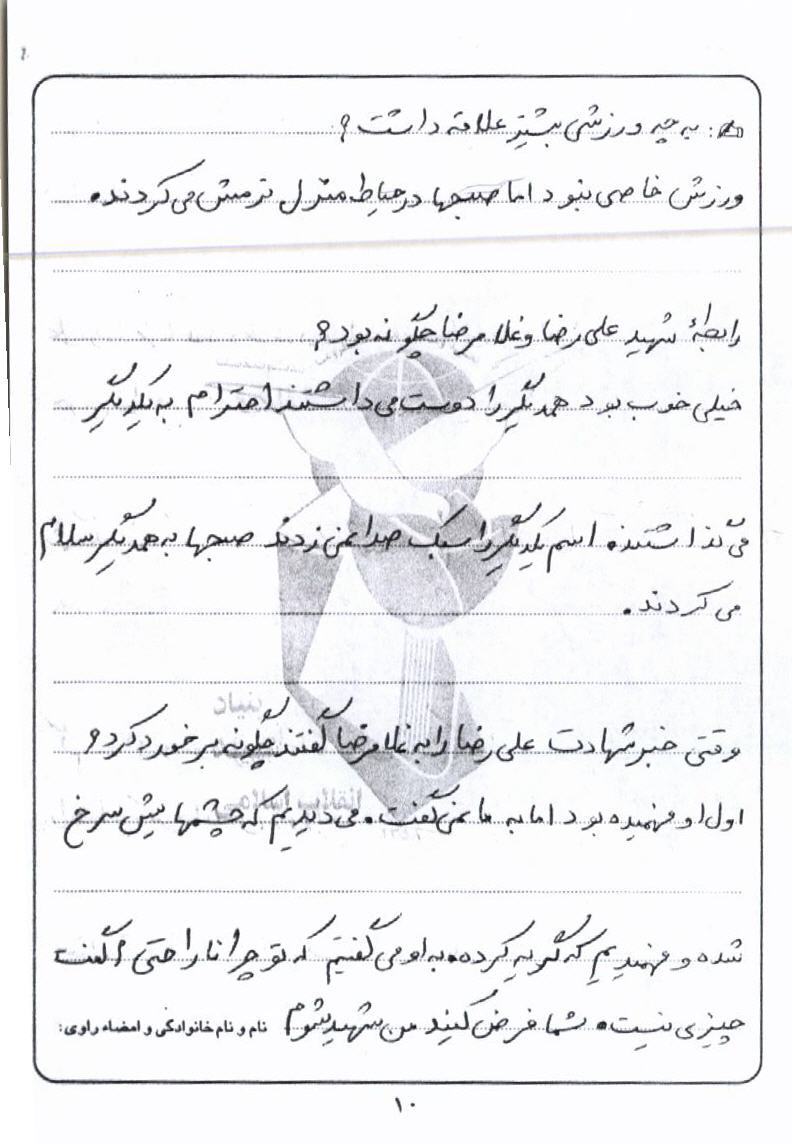 : به چه ورزشی بیشتر علاقه داشت؟
ورزش خاصی نبود اما صبحها در حیاط منزل نرمش می کردند.
رابطهٔ شهید علی رضا و غلامرضا چگونه بود؟
خیلی خوب بود همدیگر را دوست می داشتند احترام به یکدیگر
می گذاشتند. اسم یکدیگر را سبک صدا نمی زدند صبحها به همدیگر سلام
می کردند.
وقتی خبر شهادت علی رضا را به غلامرضا گفتند چگونه برخورد کرد؟
اول او فهمیده بود اما به ما نمی گفت. می دیدیم که چشمهایش سرخ
شده و فهمیدیم که گریه کرده. به او می گفتیم که تو چرا ناراحتی؟ گفت
چیزی نیست. شما فرض کنید من شهید شوم
نام و نام خانوادگی و امضاء راوی:
۱۰